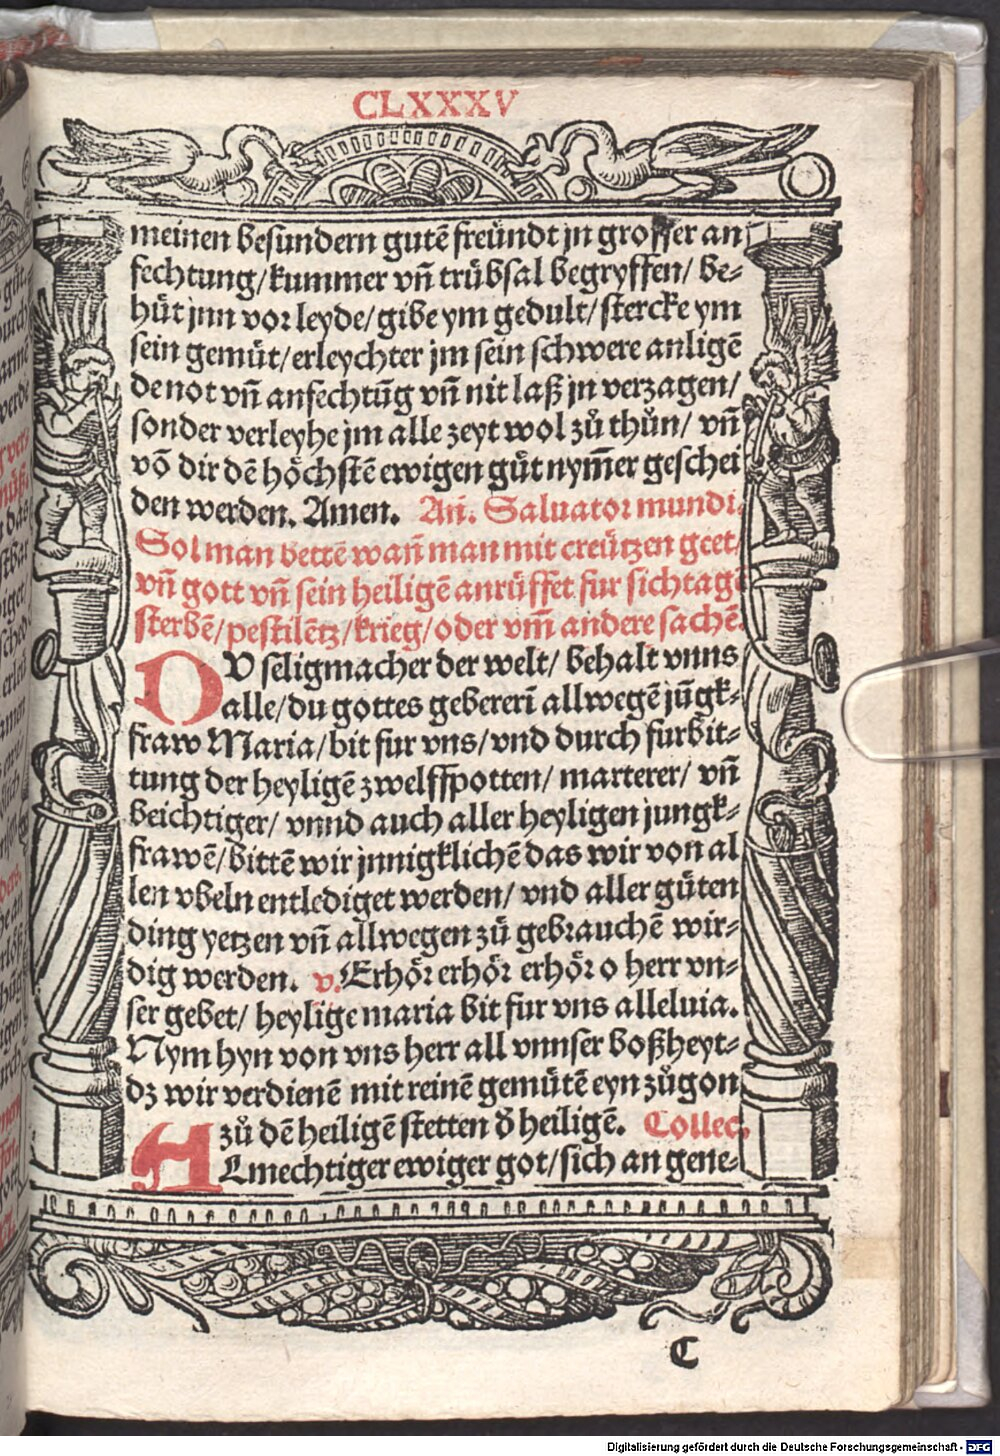 CLXXXV
meinen besundern gutē freündt jn grosser an
fechtung/kummer vñ trübsal begryffen/ be⸗
hüt jnn vor leyde/gibe ym gedult/stercke ym
sein gemüt/erleychter jm sein schwere anligē
de not vñ anfechtūg vñ nit laß jn verzagen/
sonder verleyhe jm alle zeyt wol zů thůn/ vñ
vō dir dē höchstē ewigen güt nym̄er geschei
den werden. Amen. Añ. Saluator mundi.
Sol man bettē wañ man mit creützen geet/
vñ gott vñ sein heiligē anrüffet fur sichtagē
sterbē/pestilētz/krieg/oder vm̄ andere sachē.
OV seligmacher der welt/ behalt vnns
alle/du gottes gebererī allwegē jūgk⸗
fraw Maria/bit fur vns/vnd durch furbit⸗
tung der heyligē zwelffpotten/ marterer/ vñ
beichtiger/ vnnd auch aller heyligen jungk⸗
frawē/bittē wir jnnigklichē das wir von al
len vbeln entlediget werden/ vnd aller güten
ding yetzen vñ allwegen zů gebrauchē wir⸗
dig werden. v. Erhör erhör erhör o herr vn⸗
ser gebet/ heylige maria bit fur vns alleluia.
Nym hyn von vns herr all vnnser boßheyt⸗
dz wir verdienē mit reinē gemütē eyn zůgon
zů dē heiligē stetten ð heiligē. Collec.
ALmechtiger ewiger got/sich an gene⸗
C
Digitalisierung gefördert durch die Deutsche Forschungsgemeinschaft - DFG